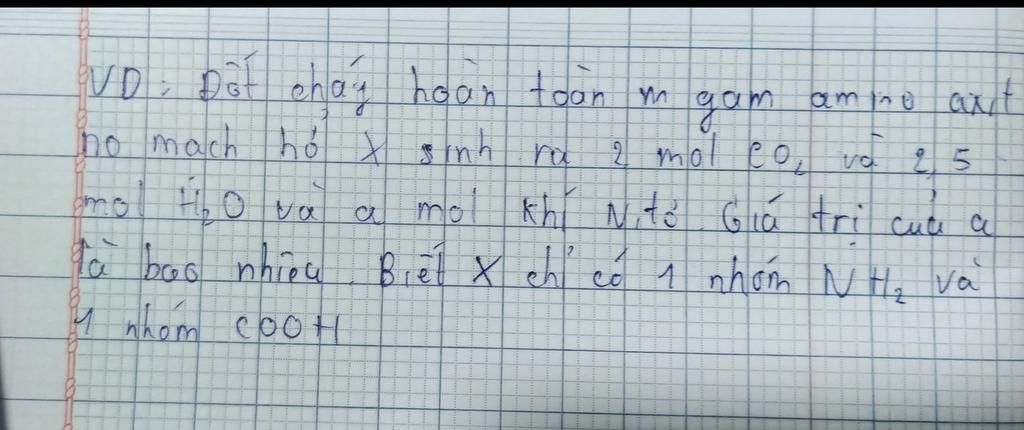 VD: Đốt cháy hoàn toàn m gam amino axit
no mạch hở X sinh ra 2 mol CO2 và 2,5
mol H2O và a mol khí Nitơ. Giá trị của a
là bao nhiêu. Biết X chỉ có 1 nhóm NH2 và
1 nhóm COOH